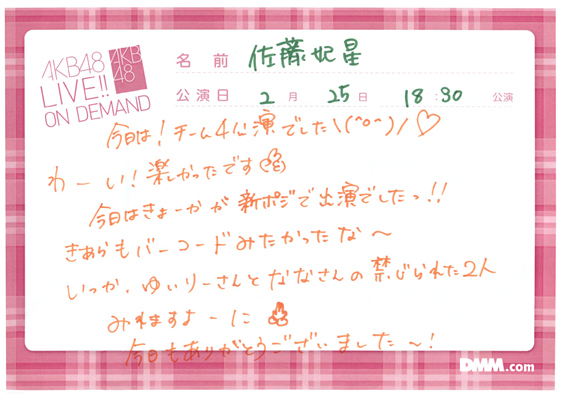 AKB48
LIVE!!
ON DEMAND
AKB
48
名前 佐藤妃星
公演日 2月 25日 18:30 公演
今日は！チーム4公演でした\(^o^)/♡
わーい！楽しかったです
今日はきょーかが新ポジで出演でしたっ!!
きあらもバーコードみたかったな〜
いつか、ゆいりーさんとななさんの禁じられた2人
みれますよーに
今日もありがとうございました〜！
DMM.com